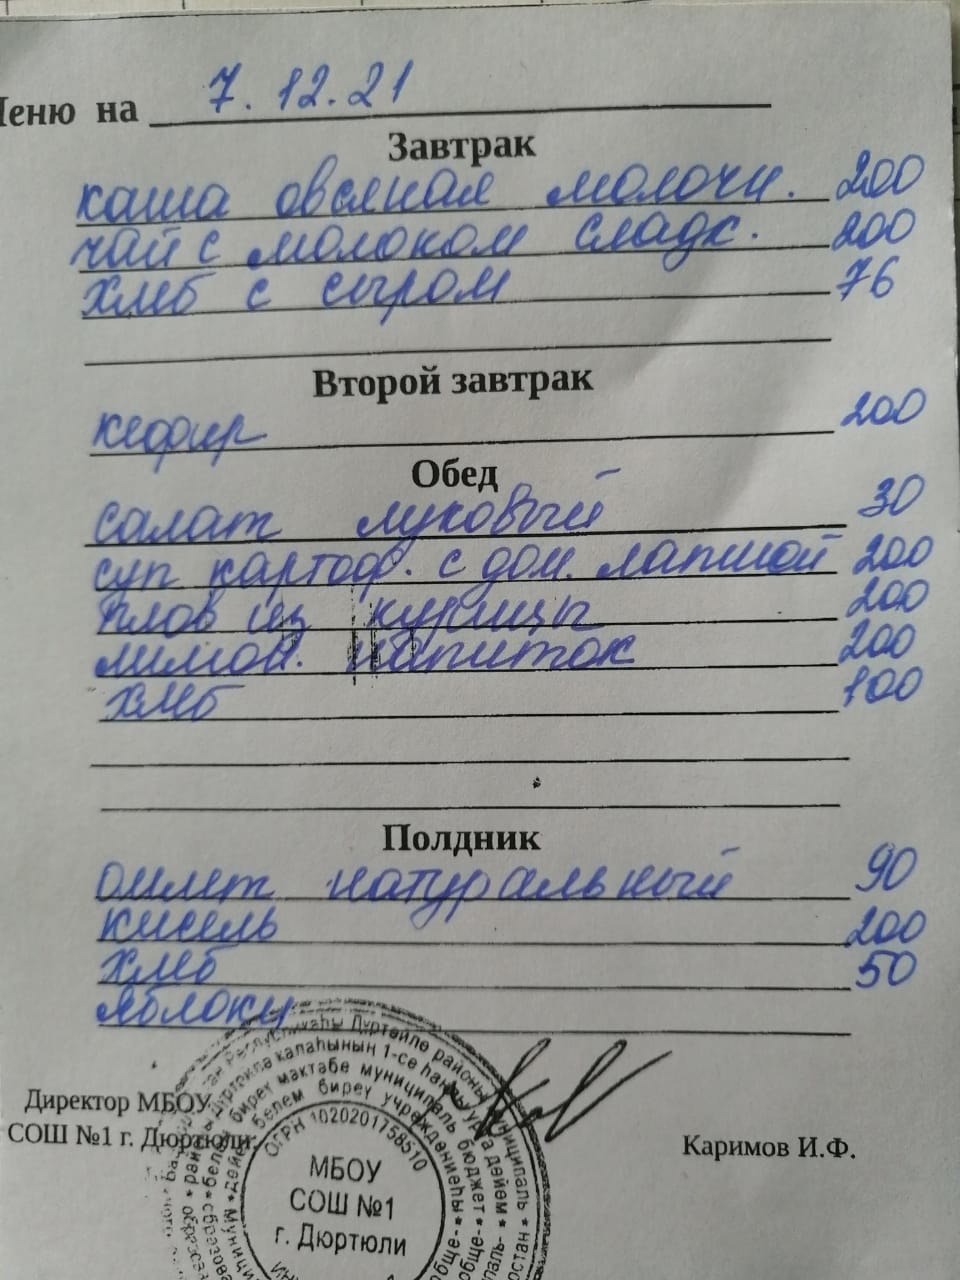 Меню на 7.12.21
Завтрак
каша овсяная молочн. 200
чай с молоком сладк. 200
хлеб с сыром 76
Второй завтрак
кефир 200
Обед
салат луковый 30
суп картоф. с дом. лапшой 200
плов из курицы 200
лимон. напиток 200
хлеб 100
Полдник
омлет натуральный 90
кисель 200
хлеб 50
яблоки
Директор МБОУ
СОШ №1 г. Дюртюли
Каримов И.Ф.
ОГРН 1020201758510
МБОУ
СОШ №1
г. Дюртюли